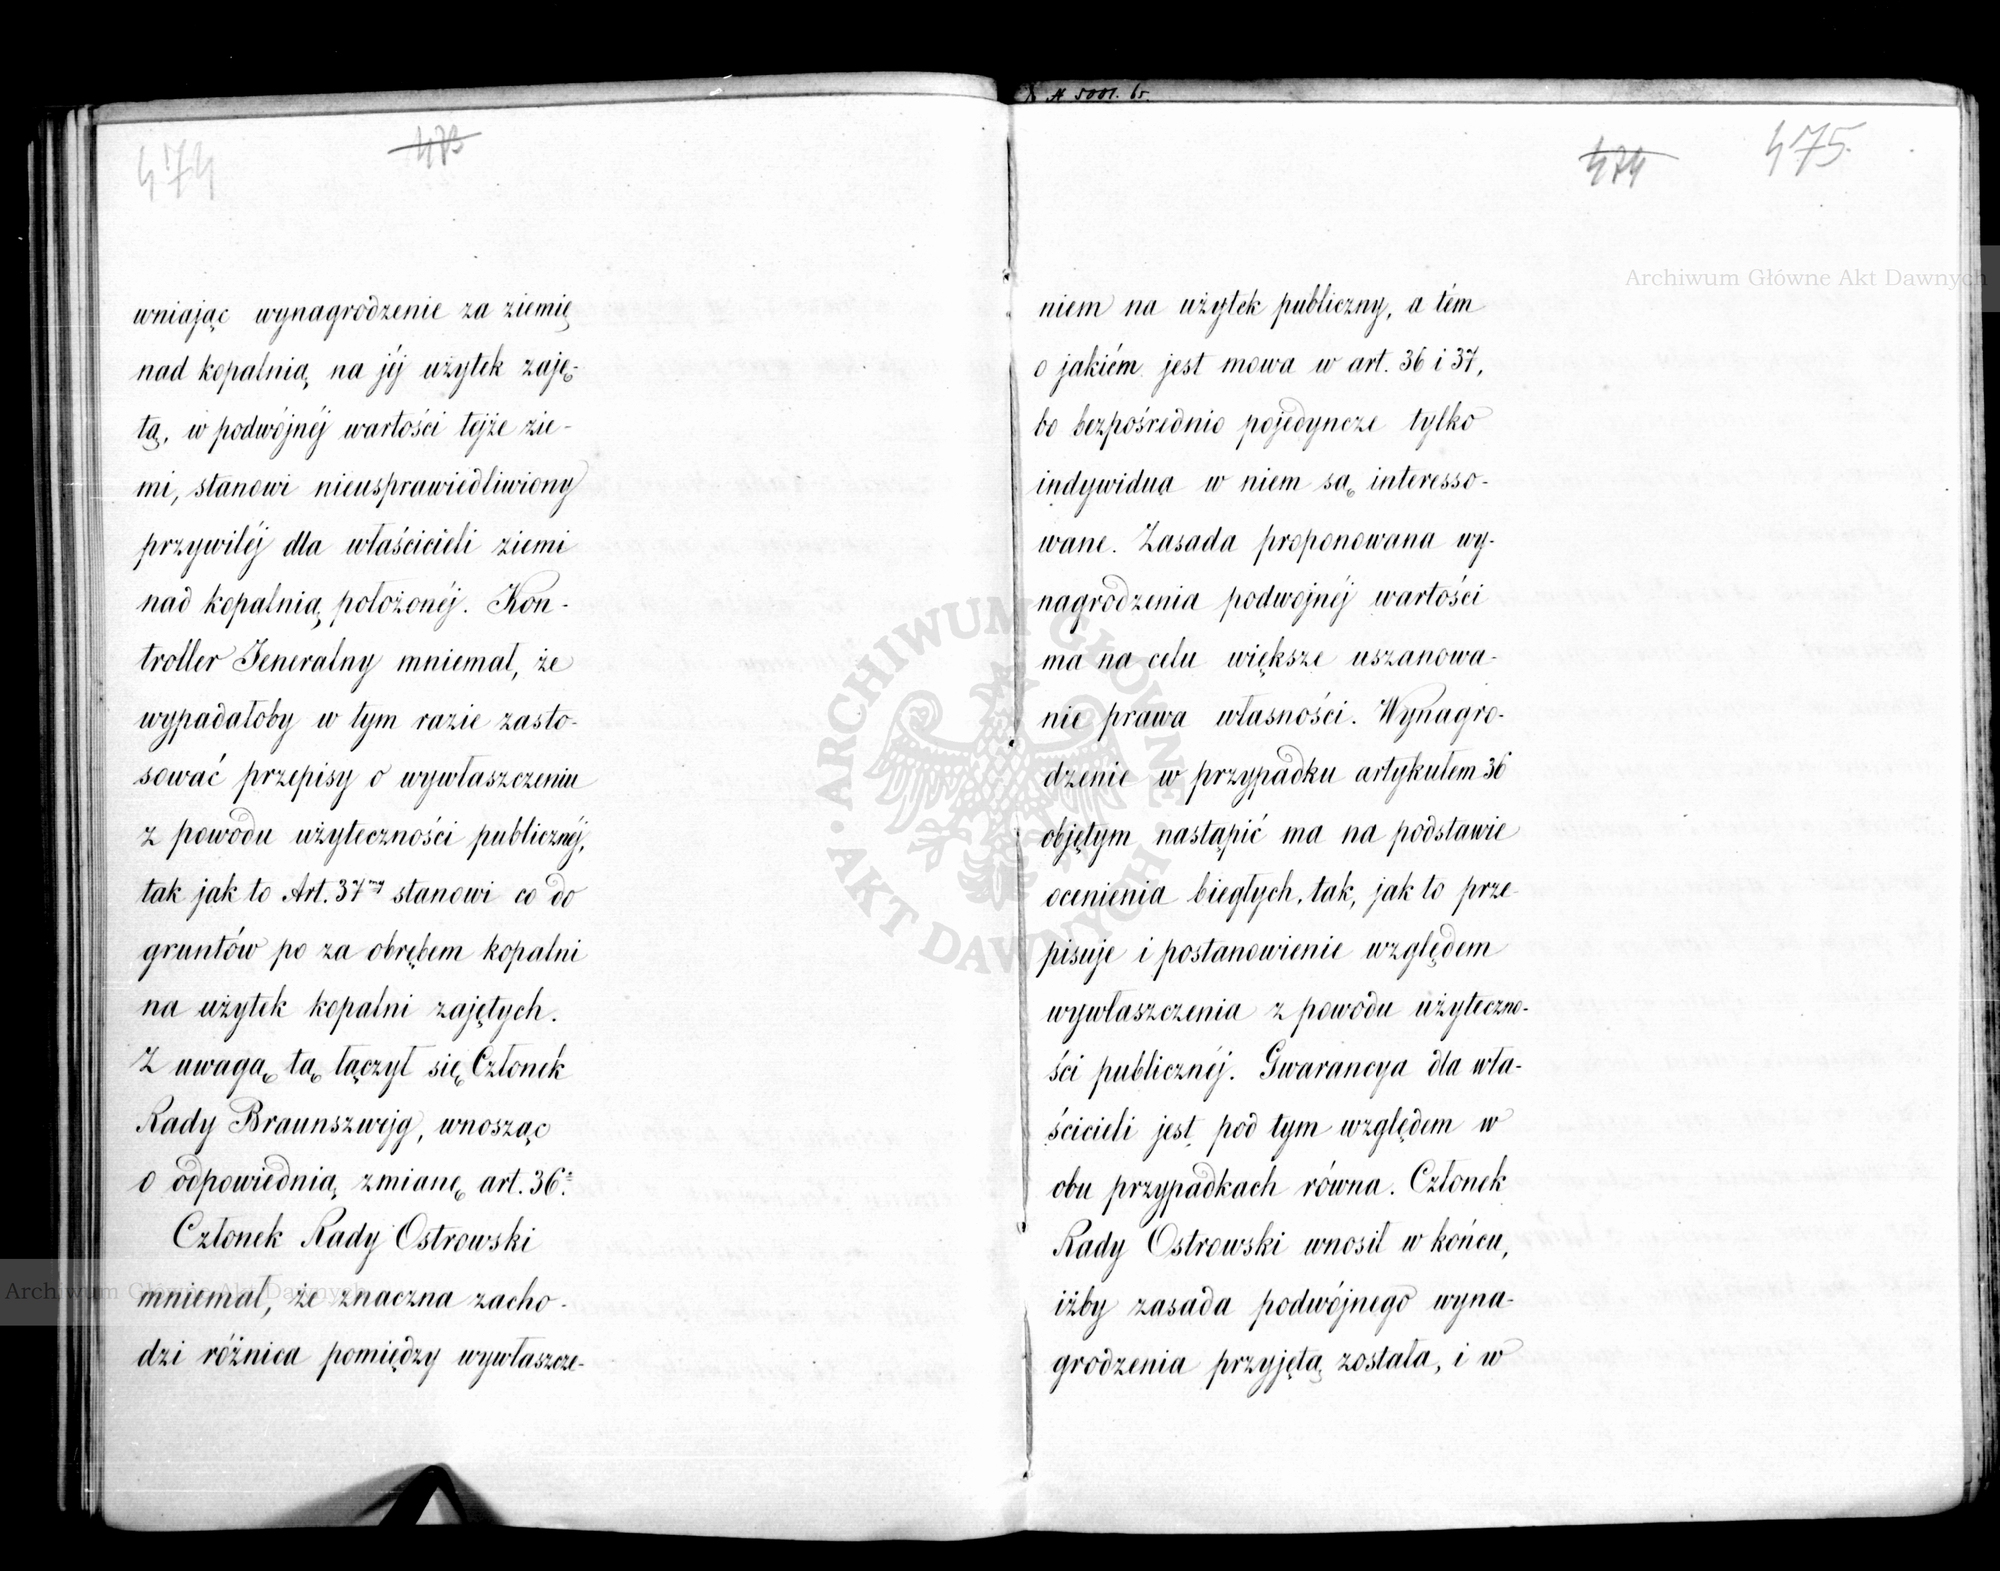 474
473
wniając wynagrodzenie za ziemię
nad kopalnią, na jéj użytek zaję-
tą, w podwójnéj wartości tejże zie-
mi, stanowi nieusprawiedliwiony
przywiléj dla właścicieli ziemi
nad kopalnią położonéj. Kon-
troller Jeneralny mniemał, że
wypadałoby w tym razie zasto-
sować przepisy o wywłaszczeniu
z powodu użyteczności publicznéj,
tak jak to Art. 37my stanowi co do
gruntów po za obrębem kopalni
na użytek kopalni zajętych.
Z uwagą tą łączył się Członek
Rady Braunszwejg, wnosząc
o odpowiednią zmianę art. 36.
Członek Rady Ostrowski
mniemał, że znaczna zacho-
dzi różnica pomiędzy wywłaszcze-
474
475.
niem na użytek publiczny, a tém
o jakiém jest mowa w art. 36 i 37,
bo bezpośrednio pojedyncze tylko
indywidua w niem są interesso-
wane. Zasada proponowana wy-
nagrodzenia podwojnéj wartości
ma na celu większe uszanowa-
nie prawa własności. Wynagro-
dzenie w przypadku artykułem 36
objętym nastąpić ma na podstawie
ocenienia biegłych, tak, jak to prze-
pisuje i postanowienie względem
wywłaszczenia z powodu użyteczno-
ści publicznéj. Gwarancya dla wła-
ścicieli jest pod tym względem w
obu przypadkach równa. Członek
Rady Ostrowski wnosił w końcu,
iżby zasada podwójnego wyna-
grodzenia przyjętą została, i w
Archiwum Główne Akt Dawnych
Archiwum Główne Akt Dawnych
ARCHIWUM GŁÓWNE AKT DAWNYCH